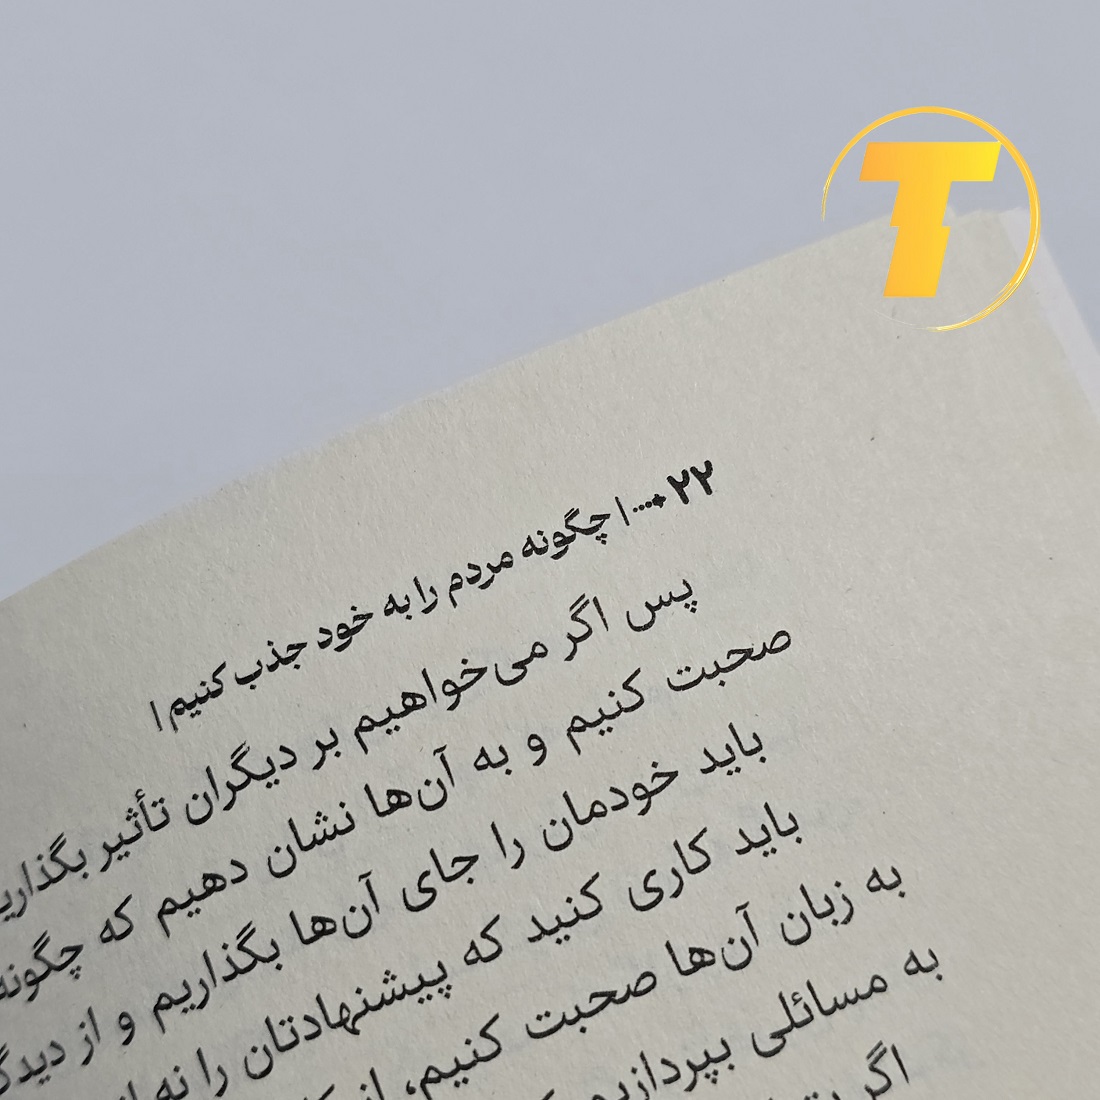 T
۲۲ ... | چگونه مردم را به خود جذب کنیم |
پس اگر می‌خواهیم بر دیگران تأثیر بگذاریم
صحبت کنیم و به آن‌ها نشان دهیم که چگونه
باید خودمان را جای آن‌ها بگذاریم و از
باید کاری کنید که پیشنهادتان را نه
به زبان آن‌ها صحبت کنیم، از
به مسائلی بپردازیم
اگر